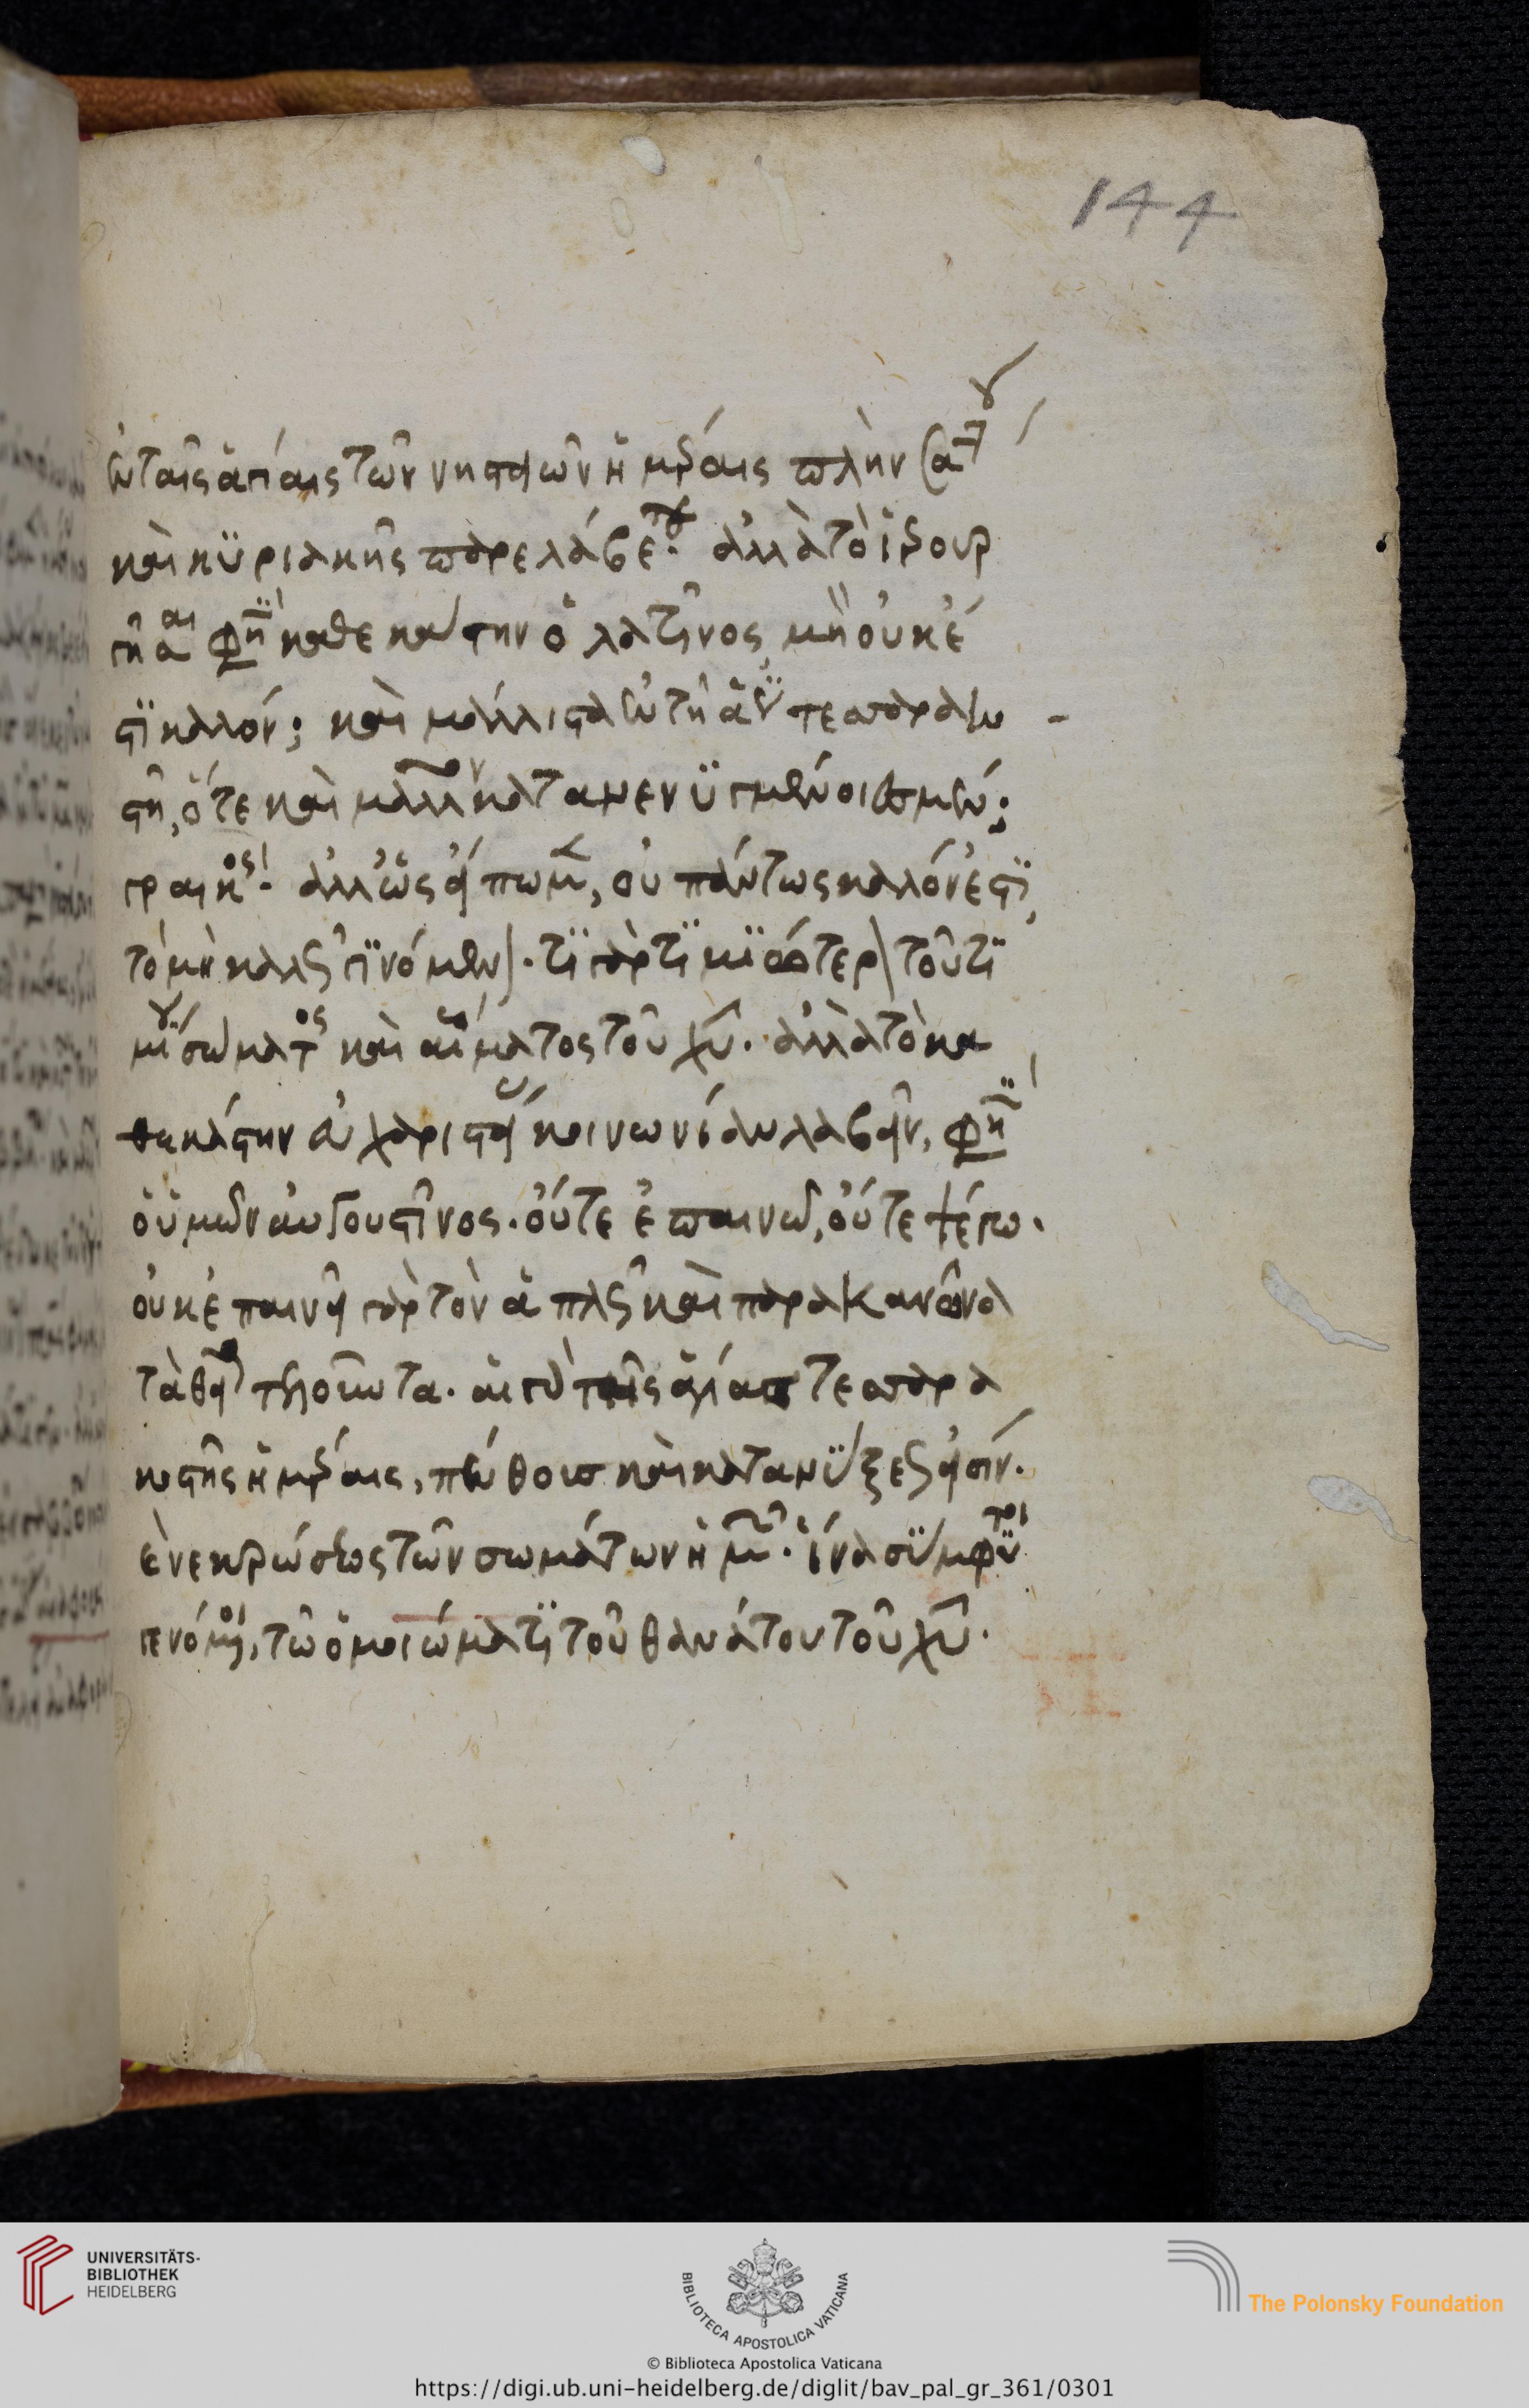 144
ἐν ταῖς ἁγίαις τῶν νηστειῶν ἡμέραις πλὴν σαββάτου
καὶ κυριακῆς παρελάβετε· ἀλλὰ τὸ ἱερουρ
γῆσαι φησὶ καθεκάστην ὁ λατῖνος, μὴ οὐκ ἔ
στι καλόν; καὶ μάλιστα ἐν τῇ ἁγίᾳ τεσσαρακο
στῇ, ὅτε καὶ μᾶλλον κατανενυγμένοι ἐσμέν;
γραικός· ἀλλ' ὡς εἴπωμεν, οὐ πάντως καλόν ἐστι,
τὸ μὴ καλῶς γινόμενον. τί γὰρ τιμιώτερον τοῦ τι
μίου σώματος καὶ αἵματος τοῦ χῦ. ἀλλὰ τὸ κα
θεκάστην εὐχαριστίας κοινωνίαν λαβεῖν, φησὶν
ὁ ὑμῶν αὐγουστῖνος. οὔτε ἐπαινῶ, οὔτε ψέγω.
οὐκ ἐπαινεῖ γὰρ τὸν ἁπλῶς καὶ παρα κανόνα
τὰ θεῖα τελοῦντα. αἱ γὰρ τῆς ἁγίας τεσσαρα
κοστῆς ἡμέραις, πένθους καὶ κατανύξεώς εἰσιν.
ἐνεκρώσεως τῶν σωμάτων ἡμῶν. ἵνα σύμφυτοι
γενόμενοι, τῷ ὁμοιώματι τοῦ θανάτου τοῦ χῦ.
UNIVERSITÄTS-
BIBLIOTHEK
HEIDELBERG
BIBLIOTECA APOSTOLICA VATICANA
The Polonsky Foundation
© Biblioteca Apostolica Vaticana
https://digi.ub.uni-heidelberg.de/diglit/bav_pal_gr_361/0301